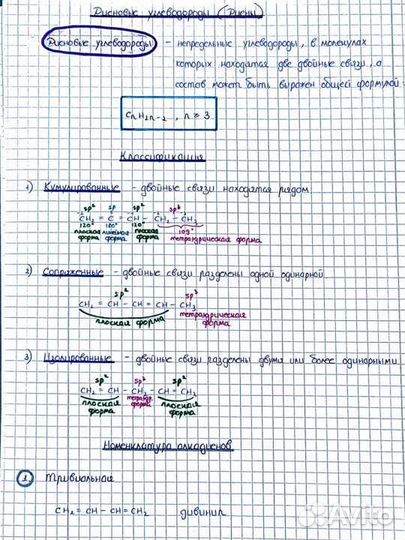 Диеновые углеводороды (Диены)
Диеновые углеводороды - непредельные углеводороды, в молекулах
которых находятся две двойные связи, а
состав может быть выражен общей формулой:
CnH2n-2, n ≥ 3
Классификация
1) Кумулированные - двойные связи находятся рядом
sp² sp sp² sp³
CH2 = C = CH - CH2 - CH3
120° 180° 120° 109°
плоская линейная плоская тетраэдрическая форма
форма форма форма
2) Сопряженные - двойные связи разделены одной одинарной
sp² sp³
CH2 = CH - CH = CH - CH3
плоская форма тетраэдрическая
форма
3) Изолированные - двойные связи разделены двумя или более одинарными
sp² sp³ sp²
CH2 = CH - CH2 - CH = CH2
плоская тетраэдр. плоская
форма форма форма
Номенклатура алкадиенов
1 Тривиальная
CH2 = CH - CH = CH2 дивинил
Avito